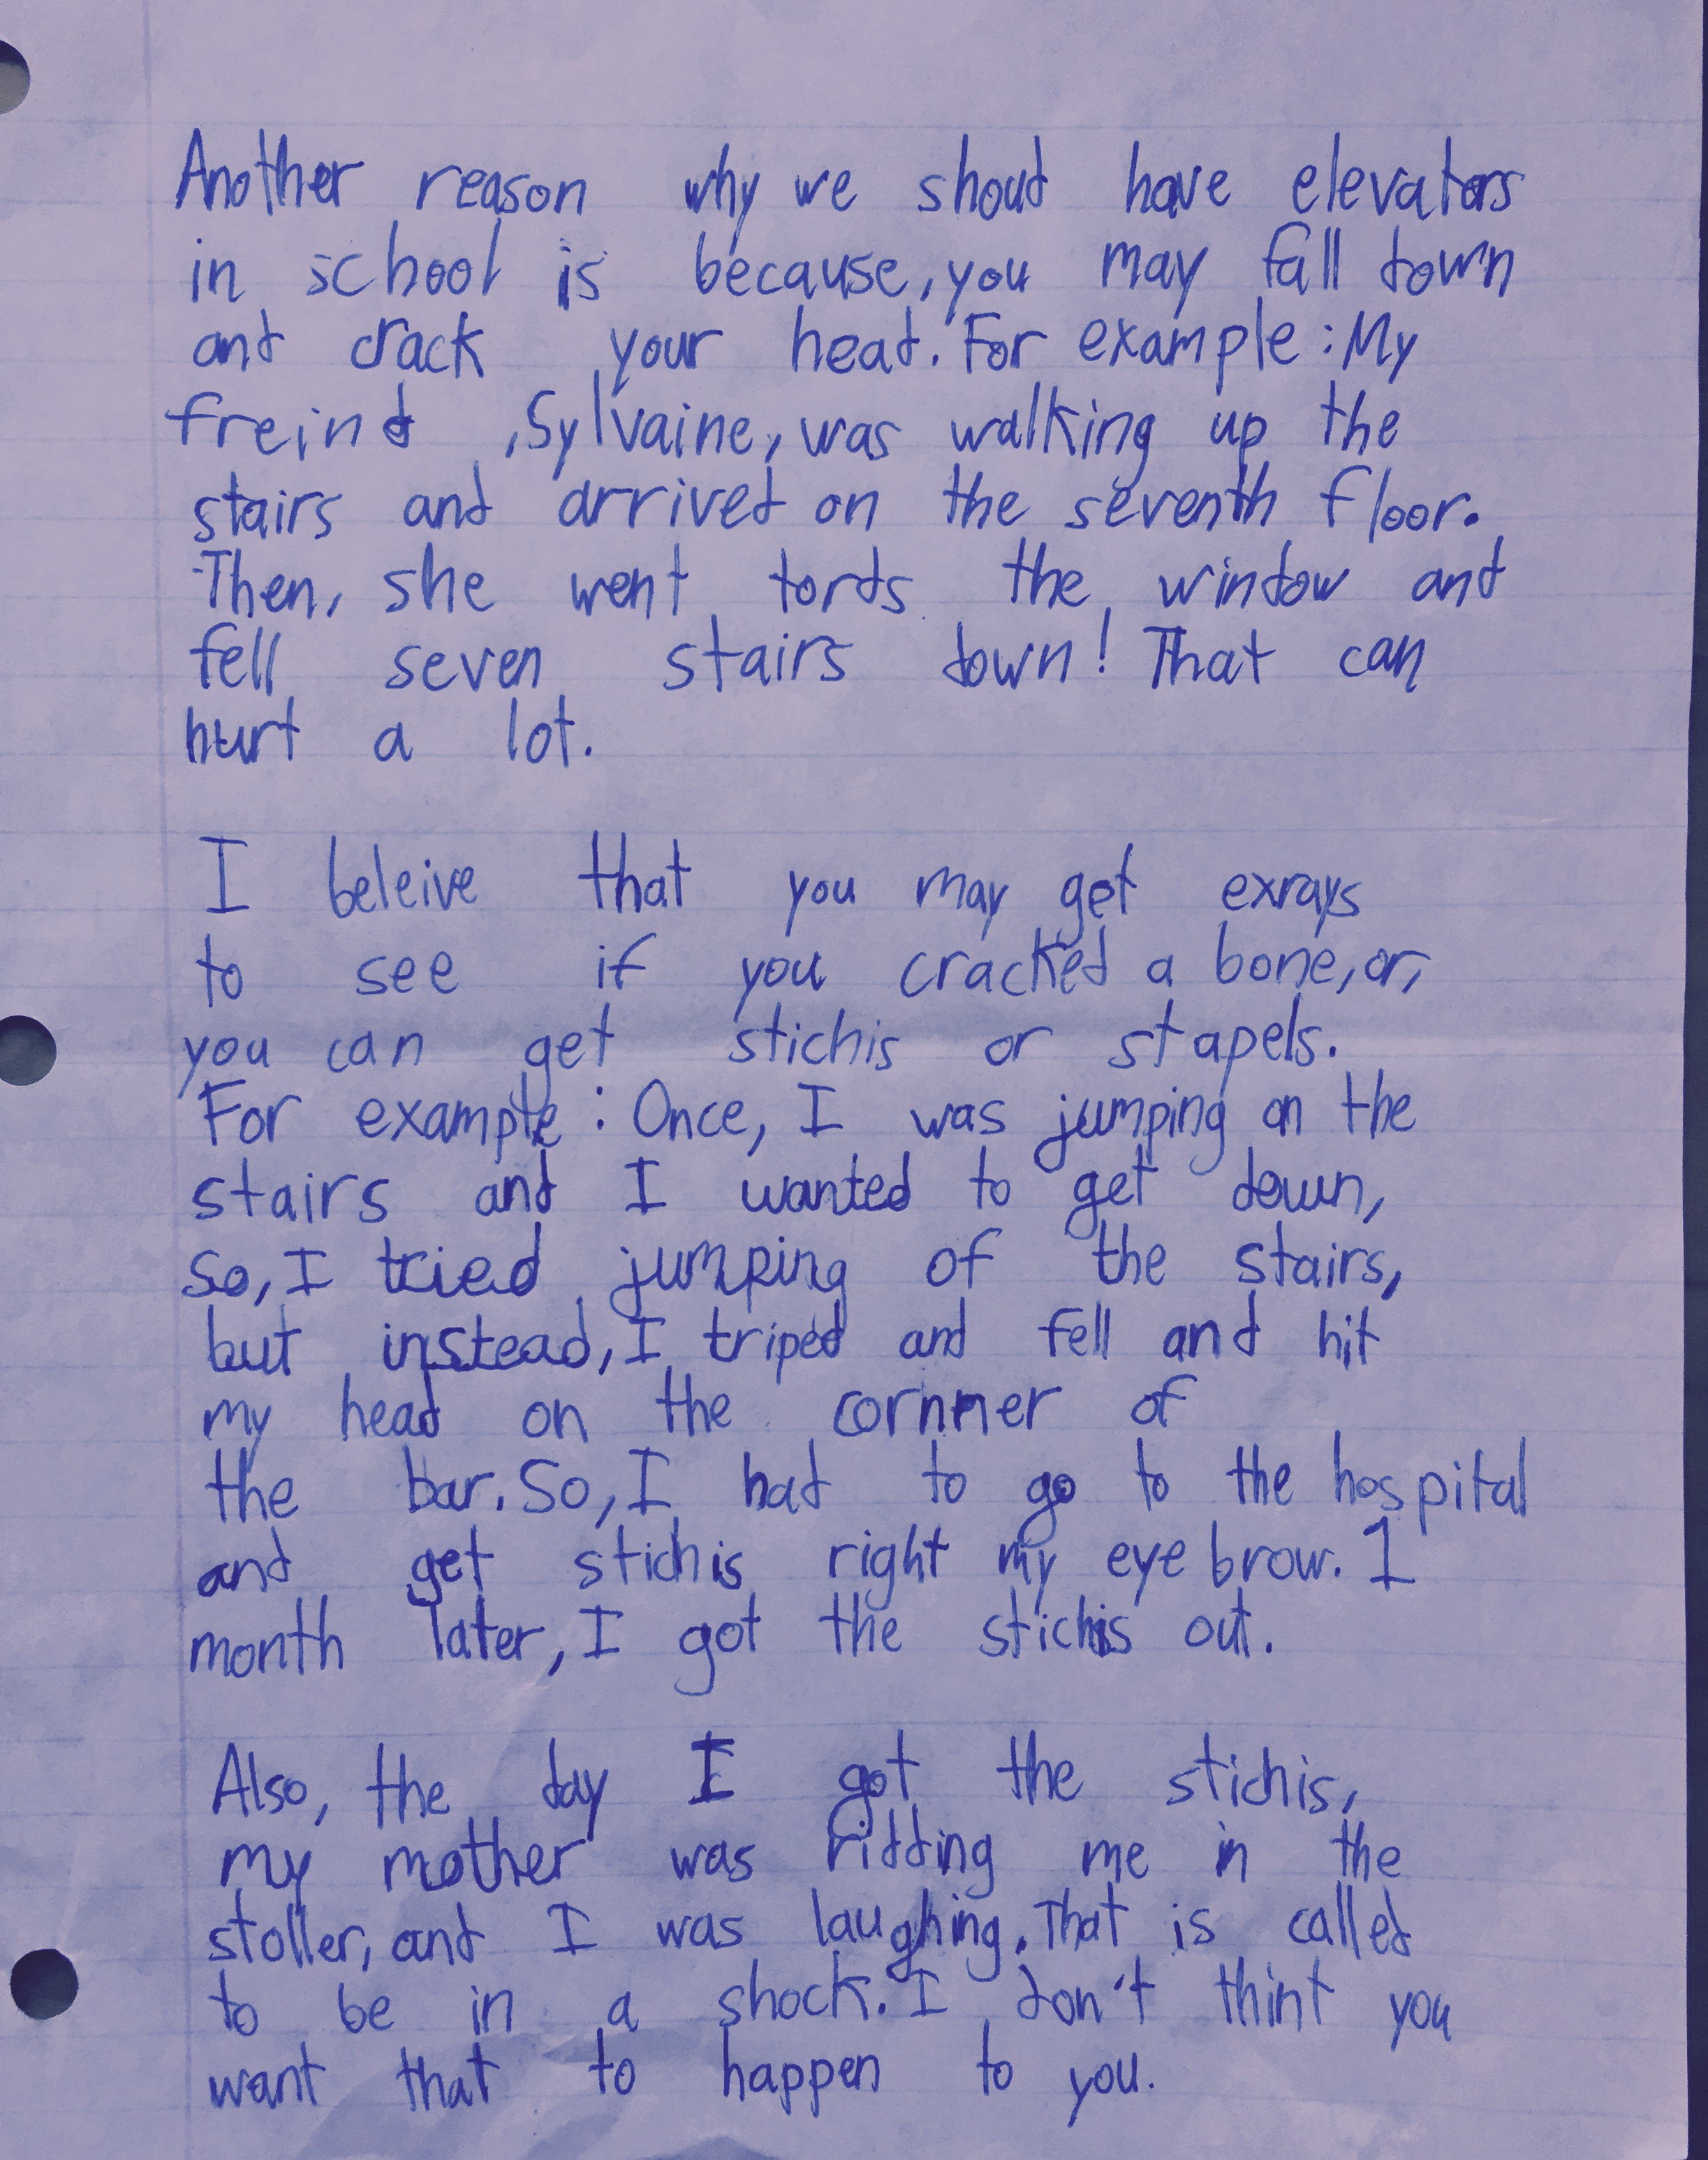 Another reason why we shoud have elevators
in school is because, you may fall down
and crack your head. For example: My
freind ,Sylvaine, was walking up the
stairs and arrived on the seventh floor.
Then, she went tords the window and
fell seven stairs down! That can
hurt a lot.
I beleive that you may get exrays
to see if you cracked a bone, or,
you can get stichis or stapels.
For example: Once, I was jumping on the
stairs and I wanted to get down,
so, I tried jumping of the stairs,
but instead, I triped and fell and hit
my head on the cornner of
the bar. So, I had to go to the hospital
and get stichis right my eye brow. 1
month later, I got the stichis out.
Also, the day I got the stichis,
my mother was ridding me in the
stoller, and I was laughing. That is called
to be in a shock. I don't thint you
want that to happen to you.